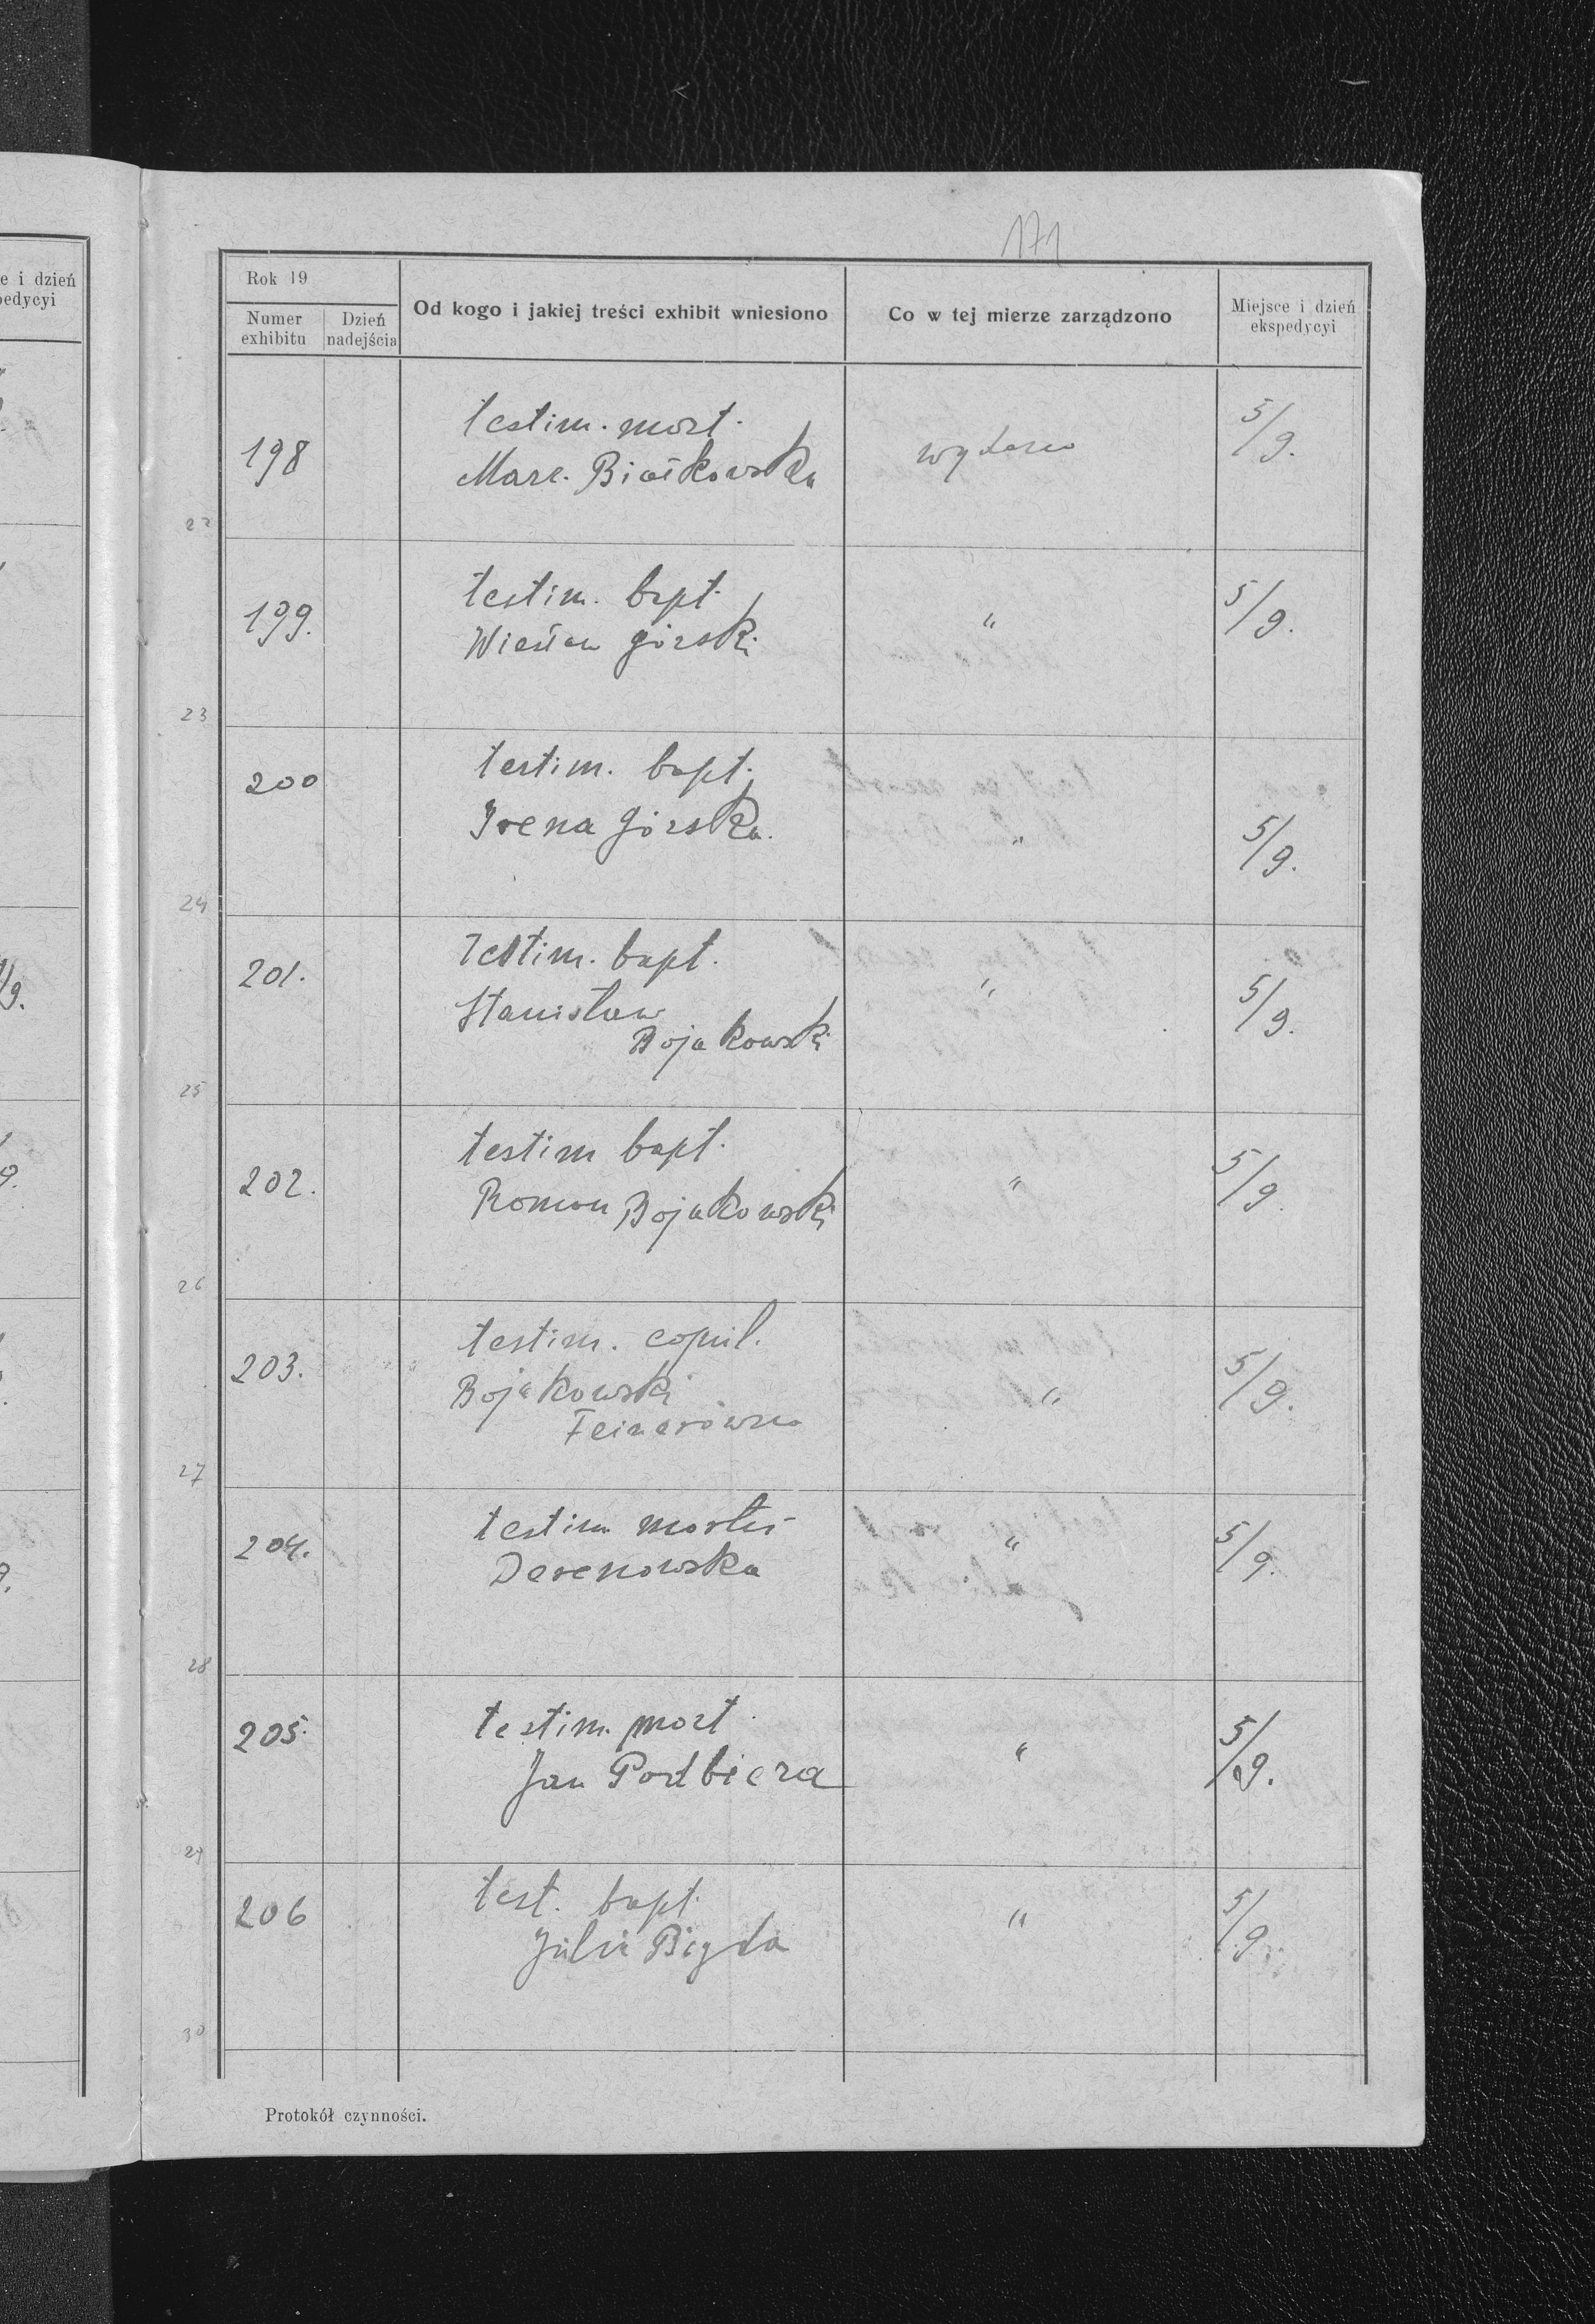 171
e i dzień
pedycyi
Rok 19
Numer exhibitu
Dzień nadejścia
Od kogo i jakiej treści exhibit wniesiono
Co w tej mierze zarządzono
Miejsce i dzień ekspedycyi
198 testim. mort. wydano 5/9.
Marc. Białkowska
22
199. testim. bapt. " 5/9.
Wiesław Górski
23
200 testim. bapt.
Irena Górska. " 5/9.
24
201. Testim. bapt. " 5/9.
Stanisław
Bojakowski
25
202. testim bapt. " 5/9.
Roman Bojakowski
26
203. testim. copul.
Bojakowski " 5/9.
Feinerówna
27
204. testim mortis " 5/9.
Derenowska
28
205. testim. mort. " 5/9.
Jan Podbiera
29
206 test. bapt. " 5/9.
Julia Bigda
30
Protokół czynności.